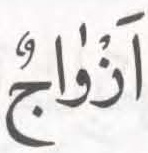 اَزْوَاجٌ